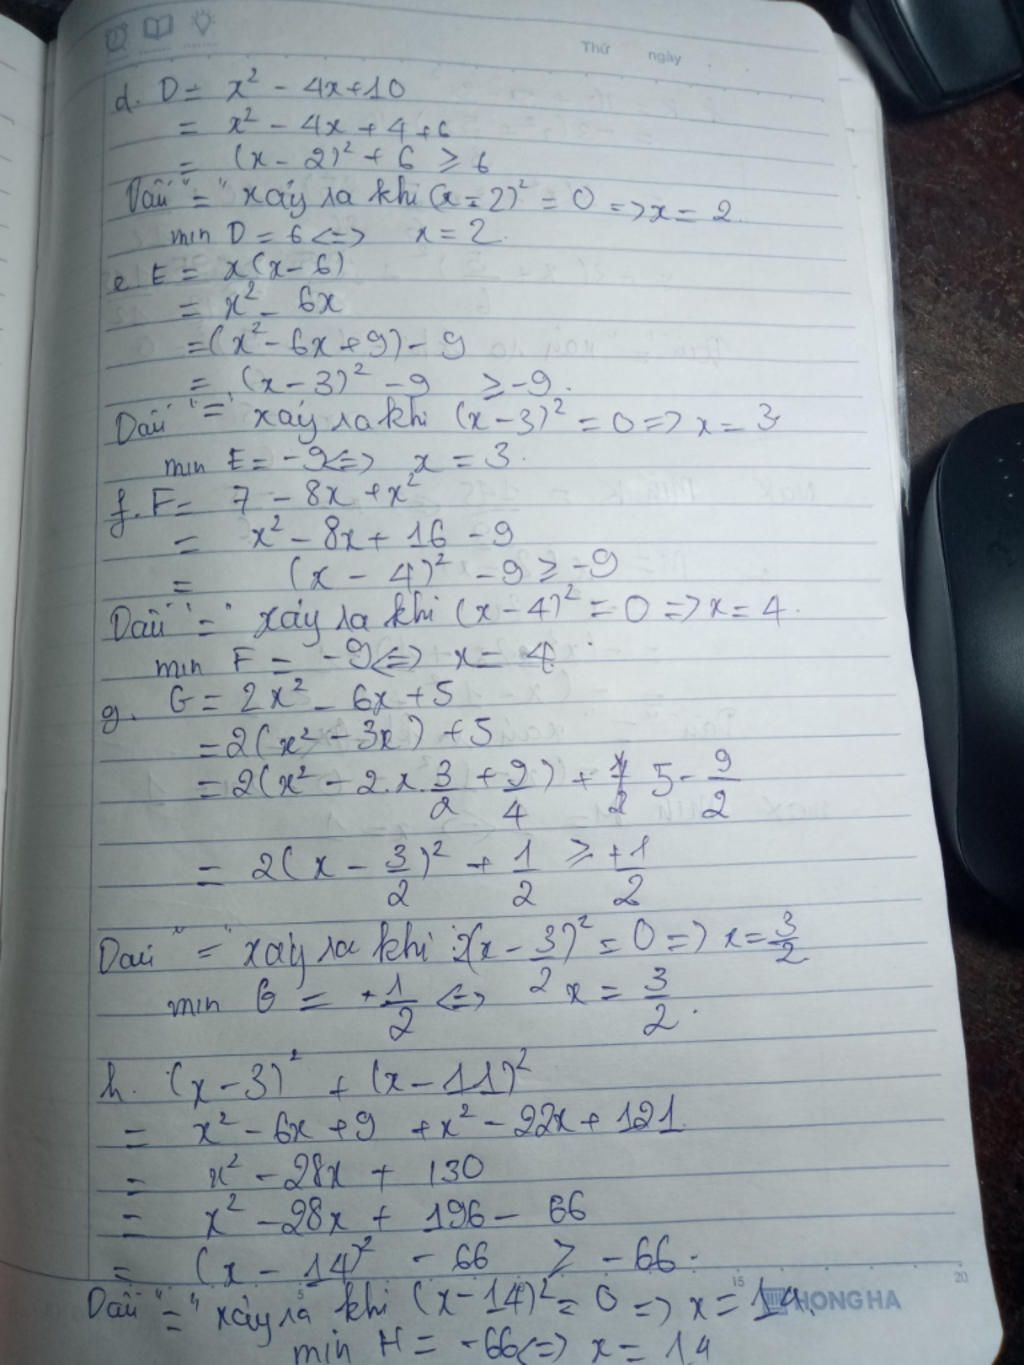 Thứ ngày
d. D = x² - 4x + 10
= x² - 4x + 4 + 6
= (x - 2)² + 6 ≥ 6
Dấu "=" xảy ra khi (x - 2)² = 0 => x = 2.
min D = 6 <=> x = 2.
e. E = x(x - 6)
= x² - 6x
= (x² - 6x + 9) - 9
= (x - 3)² - 9 ≥ -9.
Dấu "=" xảy ra khi (x - 3)² = 0 => x = 3
min E = -9 <=> x = 3.
f. F = 7 - 8x + x²
= x² - 8x + 16 - 9
= (x - 4)² - 9 ≥ -9
Dấu "=" xảy ra khi (x - 4)² = 0 => x = 4.
min F = -9 <=> x = 4.
g. G = 2x² - 6x + 5
= 2(x² - 3x) + 5
= 2(x² - 2.x.3/2 + 9/4) + 5 - 9/2
= 2(x - 3/2)² + 1/2 ≥ +1/2
Dấu "=" xảy ra khi 2(x - 3/2)² = 0 => x = 3/2
min G = +1/2 <=> x = 3/2.
h. (x - 3)² + (x - 11)²
= x² - 6x + 9 + x² - 22x + 121
= x² - 28x + 130
= x² - 28x + 196 - 66
= (x - 14)² - 66 ≥ -66.
5 15 20
Dấu "=" xảy ra khi (x - 14)² = 0 => x = 14.
HONG HA
min H = -66 <=> x = 14